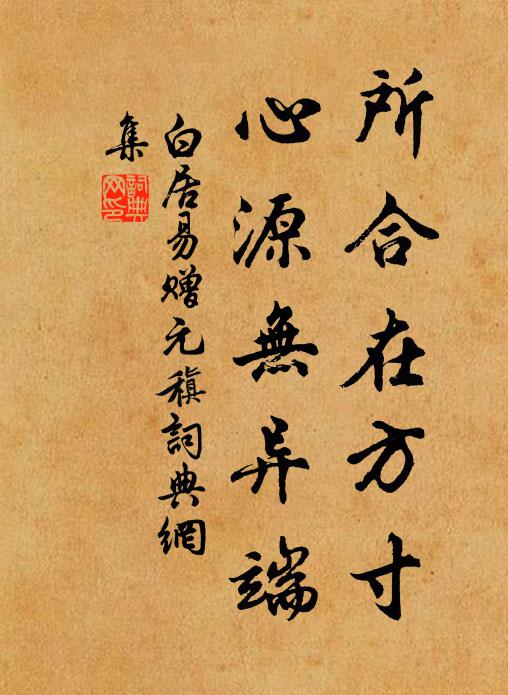 所合在方寸
心源無异端
白居易赠元稹詞典網
集
詞典
网印